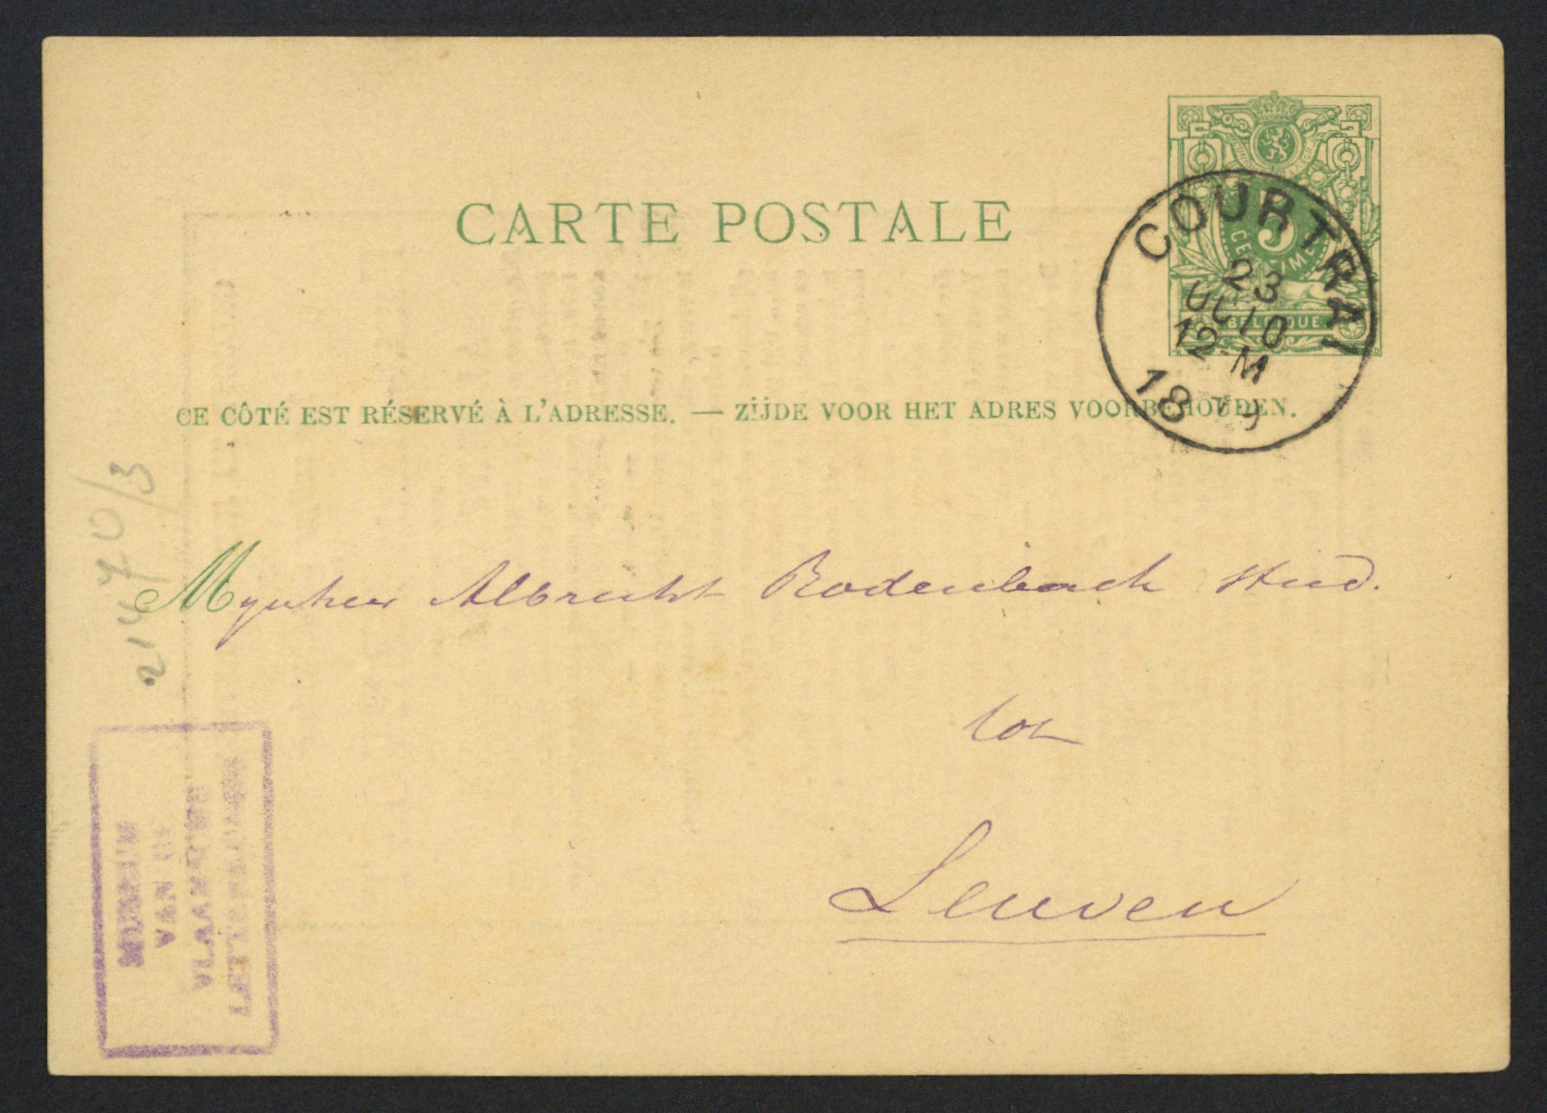 CARTE POSTALE
5
CENTIMES
BELGIQUE
COURTRAI
23
OCTO
12-M
1879
CE CÔTÉ EST RÉSERVÉ À L'ADRESSE. — ZIJDE VOOR HET ADRES VOORBEHOUDEN.
Mynheer Albrecht Rodenbach Stud.
tot
Leuven
21470/3
MUSEUM
VAN DE
VLAAMSCHE
LETTERKUNDE